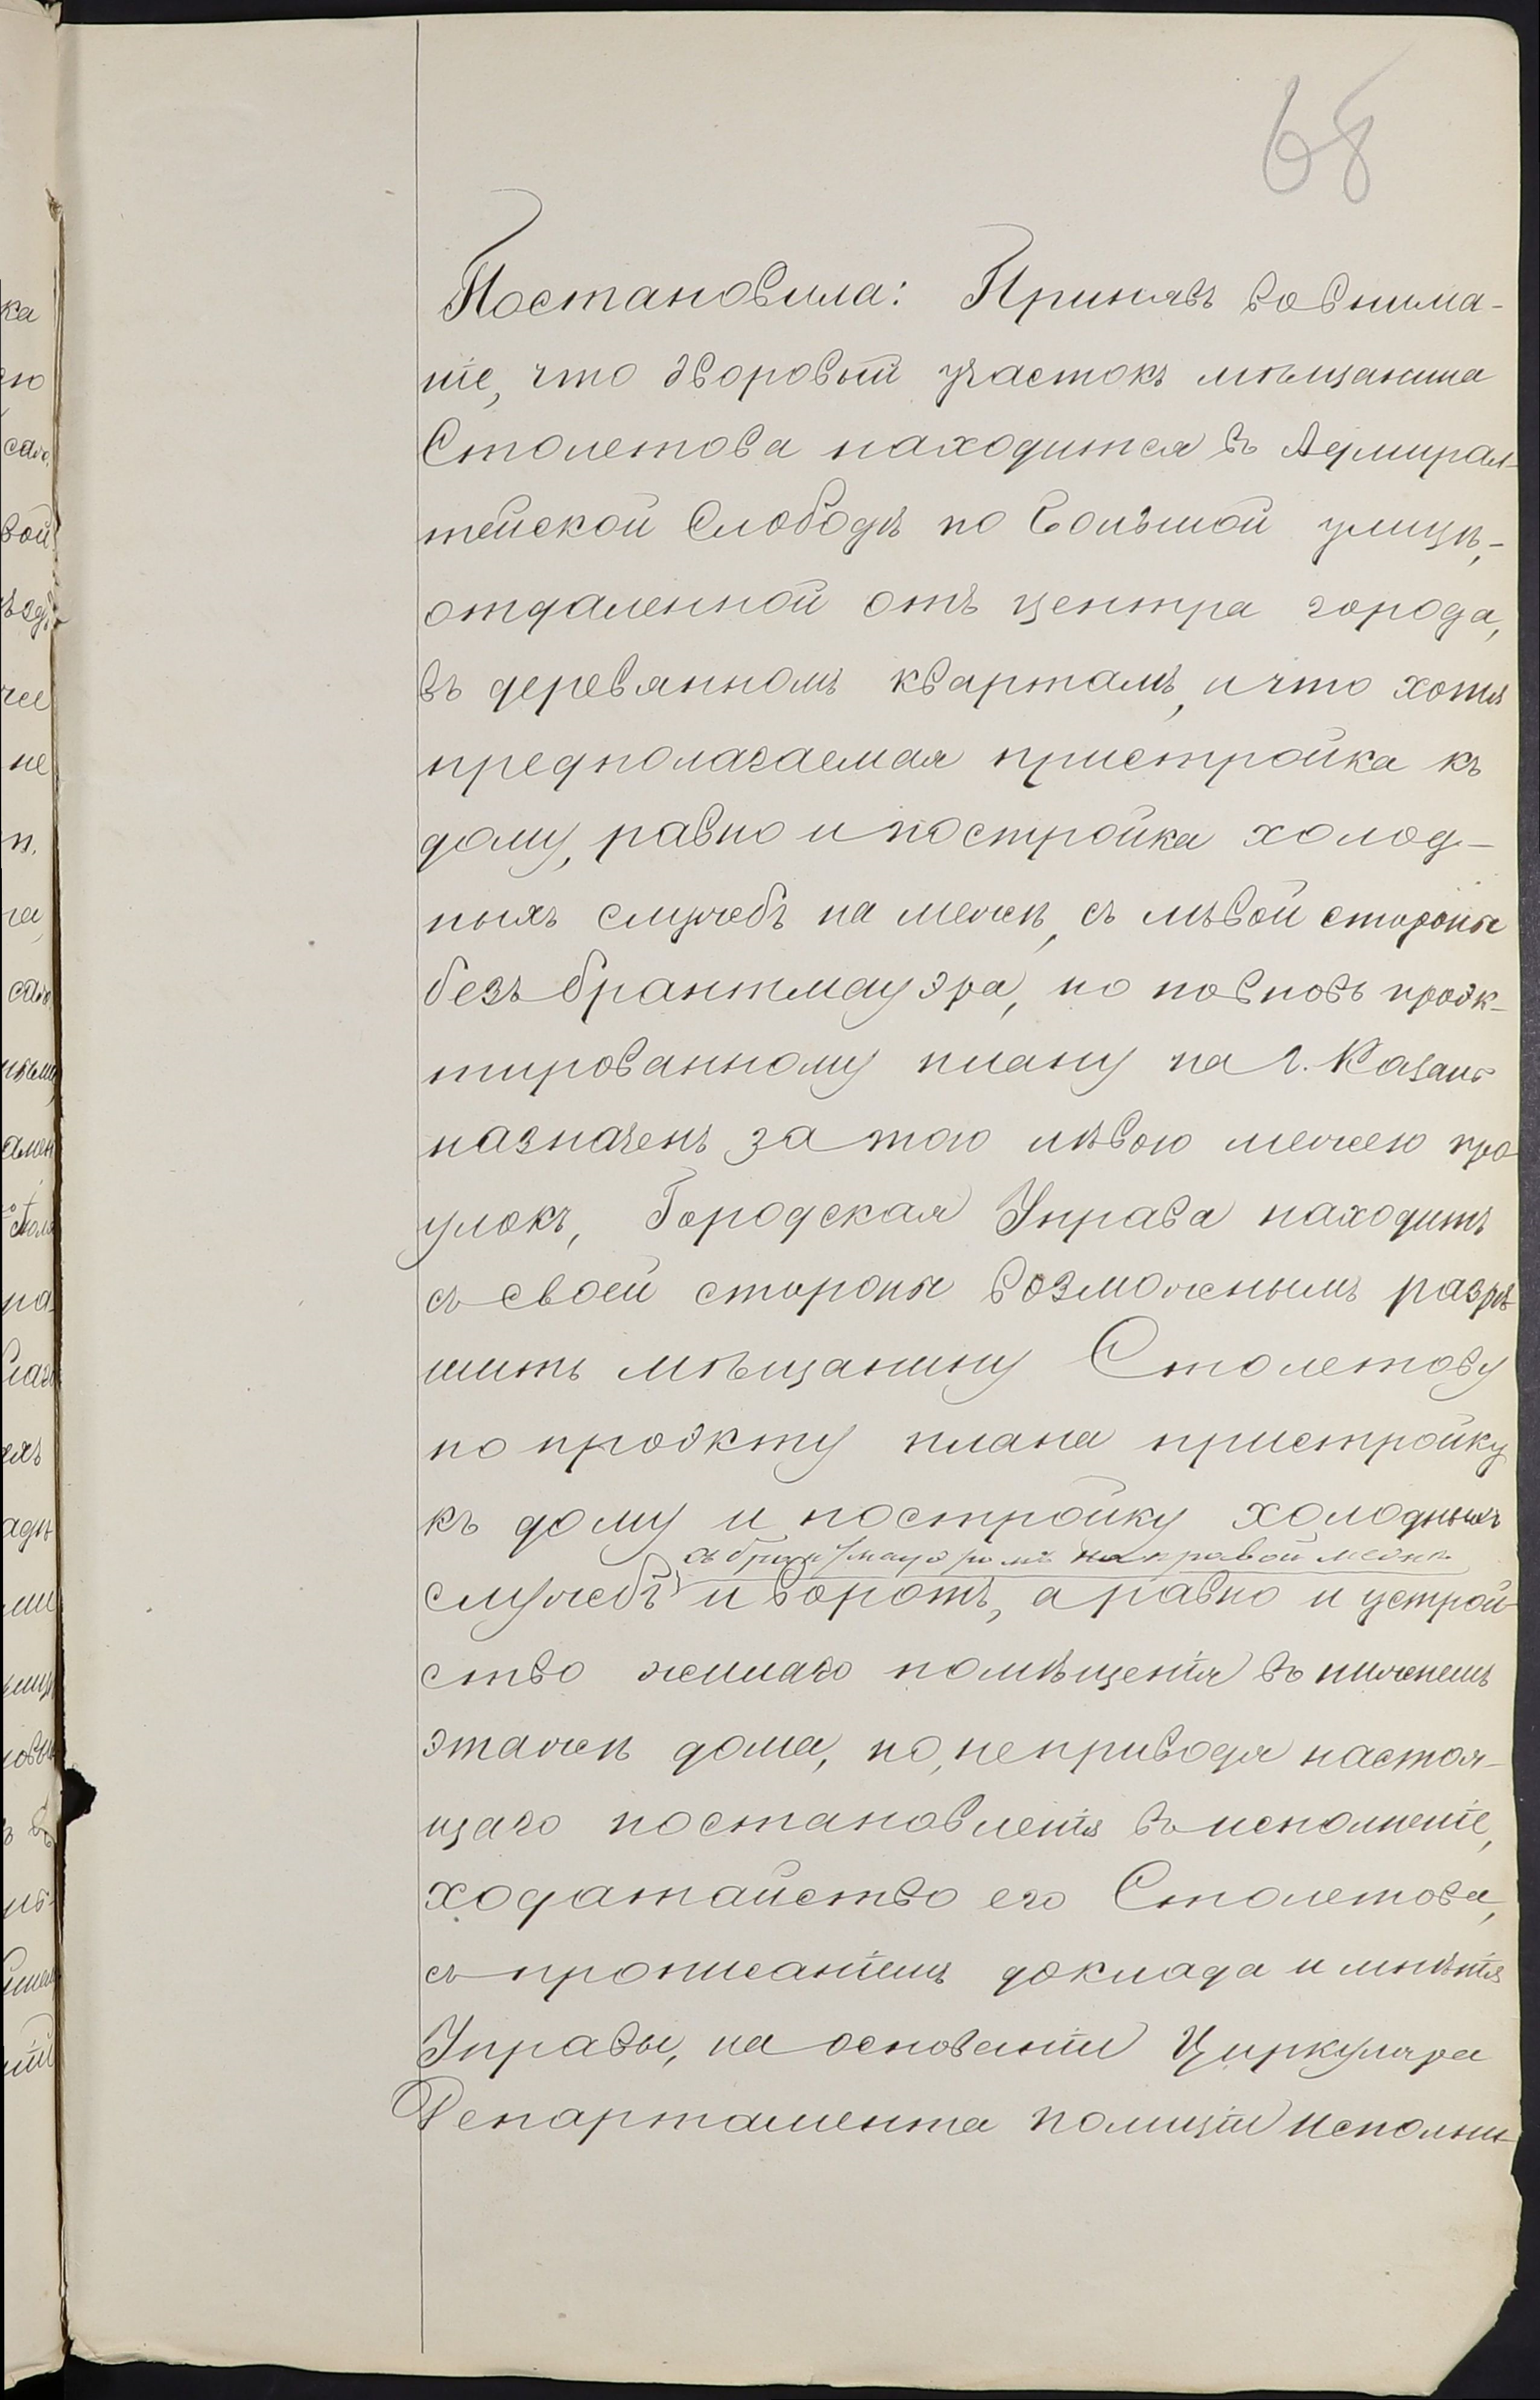 68
Постановила: Принявъ вовнима-
ніе, что дворовый участокъ мѣщанина
Столетова находится въ Адмирал-
тейской Слободѣ по Большой улицѣ,-
отдаленной отъ центра города,
въ деревянномъ кварталѣ, и что хотя
предполагаемая пристройка къ
дому, равно и постройка холод-
ныхъ службъ на межѣ, съ лѣвой стороны
безъ брантмауэра, но повновь проэк-
тированному плану на г. Казань
назначенъ за тою лѣвою межею про
улокъ, Городская Управа находитъ
съ своей стороны возможнымъ разрѣ
шить мѣщанину Столетову
по проэкту плана пристройку
къ дому и постройку холодныхъ
съ брантмауэромъ на правой межѣ
службъ и воротъ, а равно и устрой-
ство жилаго помѣщенія въ нижнемъ
этажѣ дома, но, неприводя настоя-
щаго постановленія въ исполненіе,
ходатайство его Столетова,
съ прописаніемъ доклада и мнѣнія
Управы, на основаніи Циркуляра
Департамента полиціи Исполни-